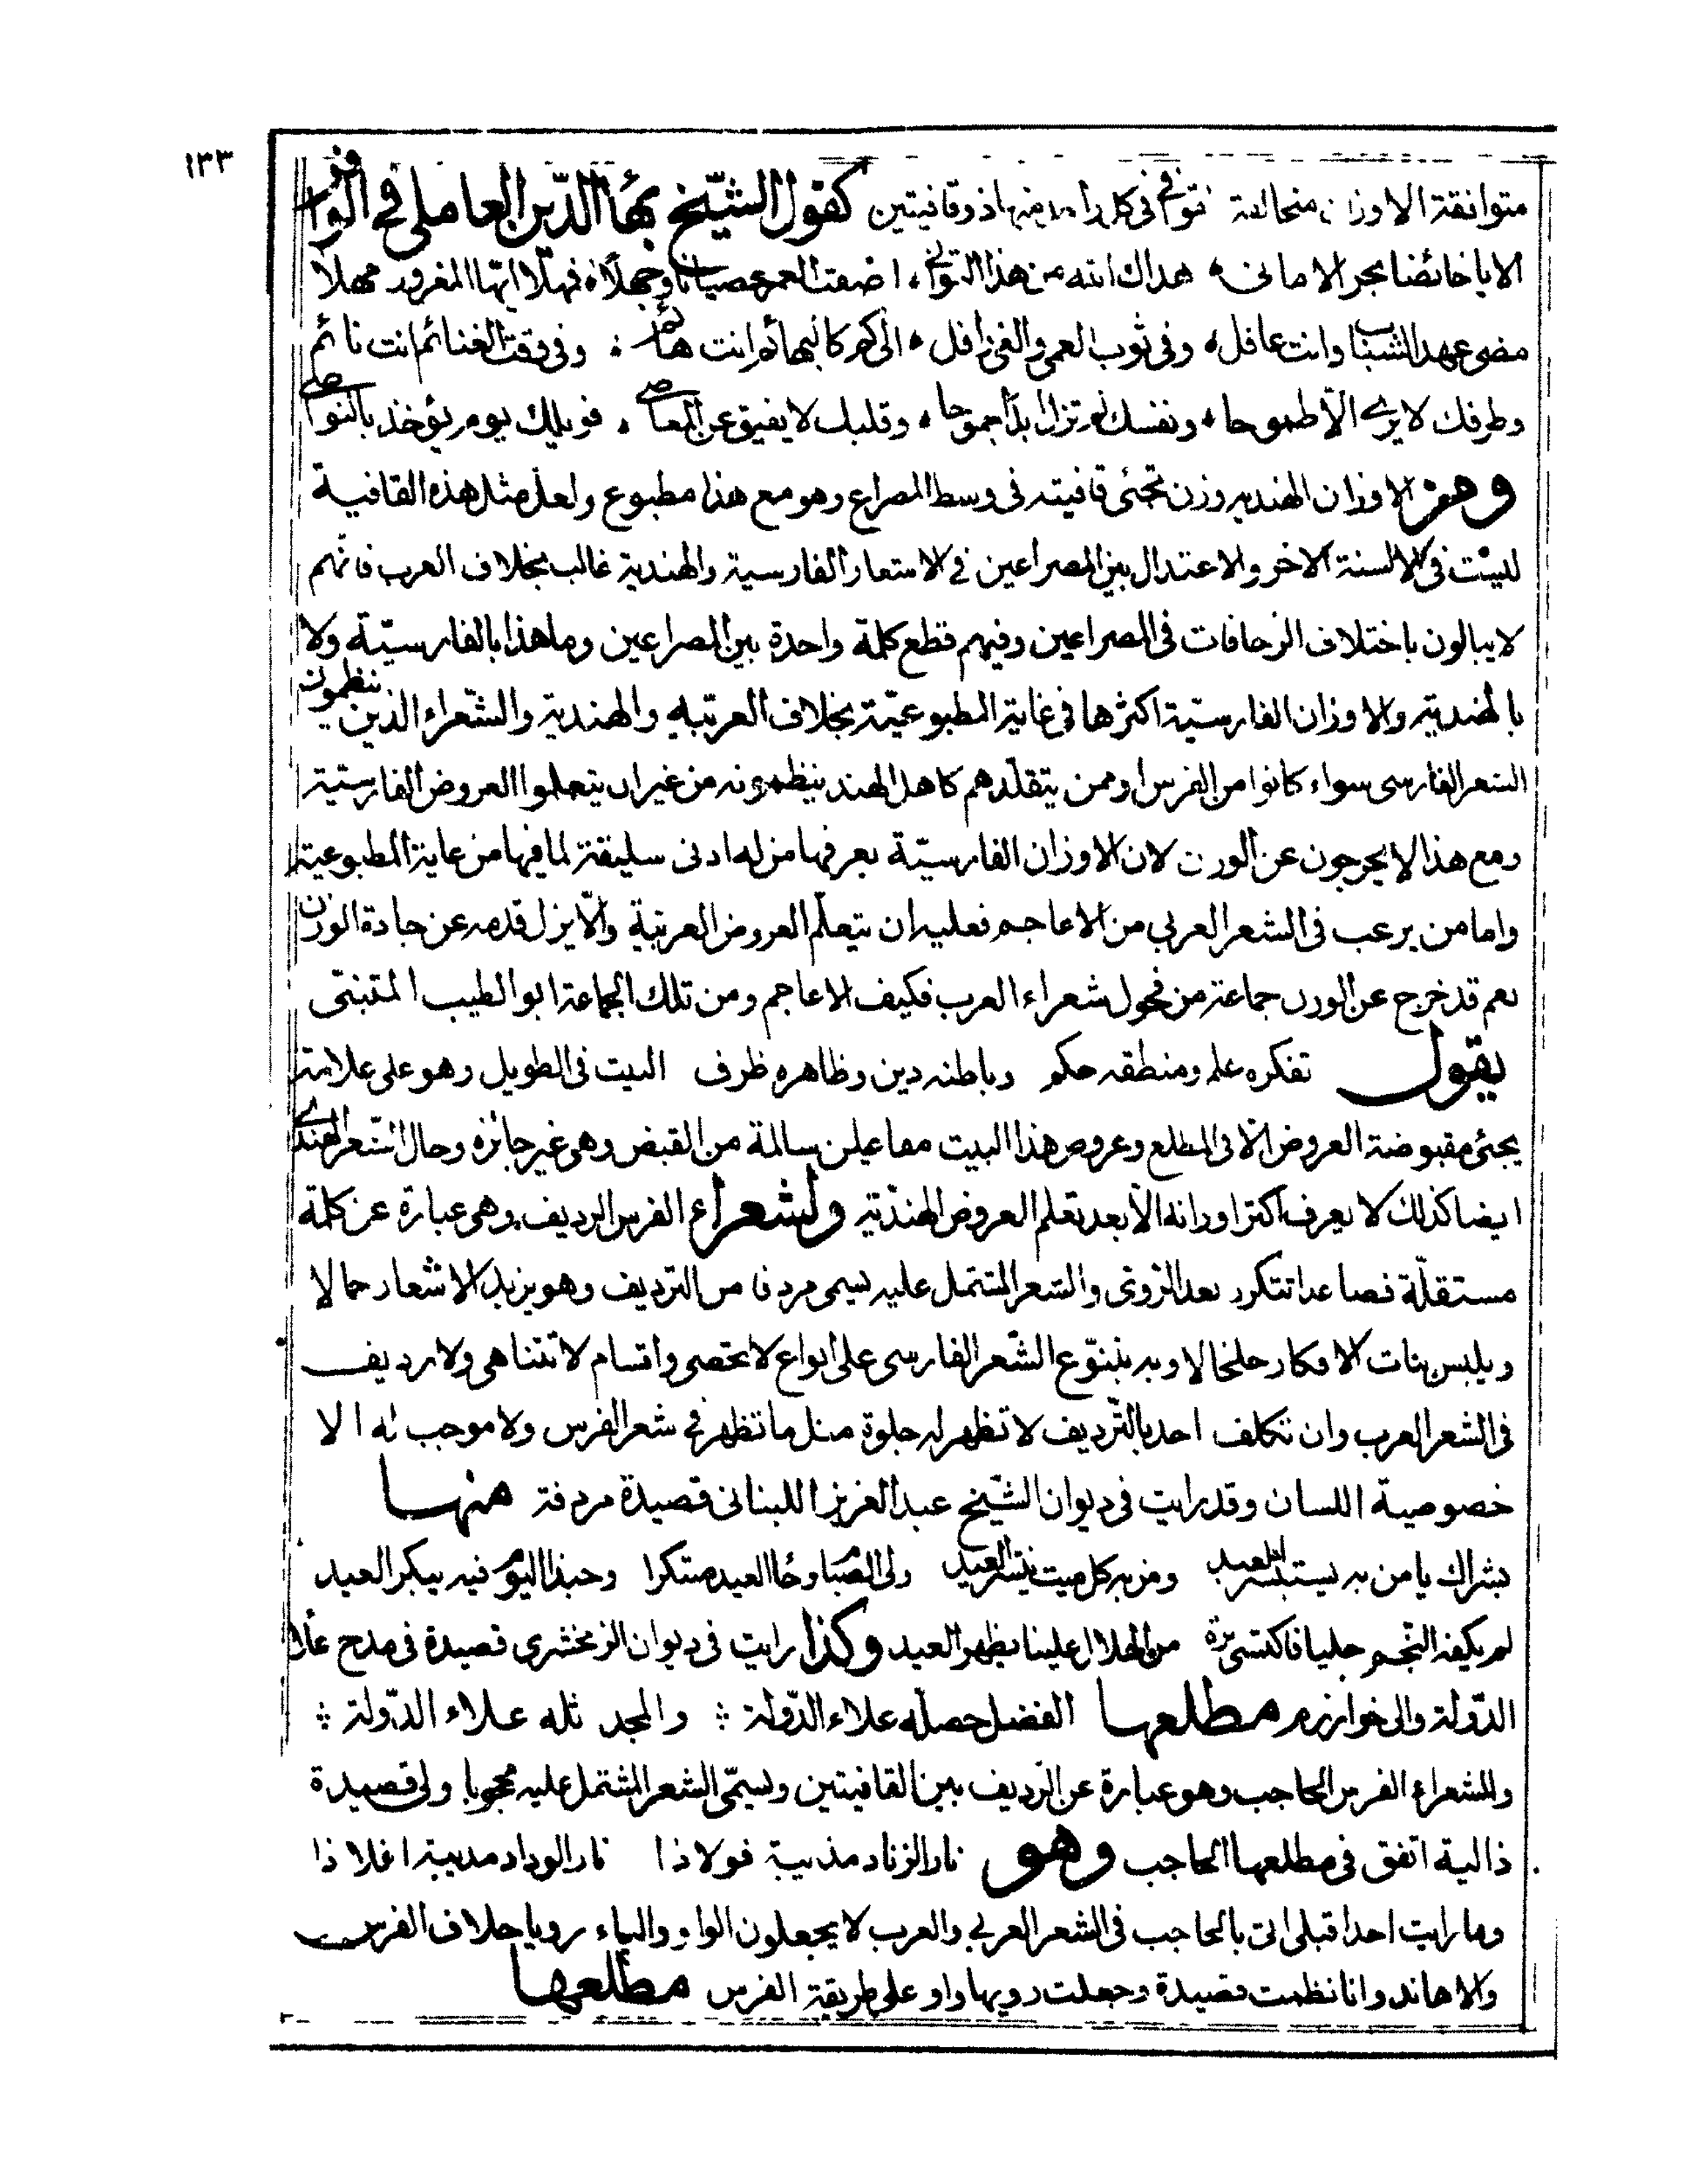 ١٣٣
متوافقة الاوزان متخالفة في كل واحد منها ذو قافيتين كقول الشيخ بهاء الدين العاملي في الوافر
الا يا خائضا بحر الاماني هداك الله من هذا التواني اضعت العمر عصيانا وجهلا فمهلا ايها المغرور مهلا
مضى عهد الشباب وانت غافل وفي ثوب العمى والغي رافل الى كم كالبهائم انت هائم وفي وقت الغنائم انت نائم
وطرفك لا يرى الا طموحا ونفسك لم تزل بدا جموحا وقلبك لا يفيق عن المعاصي فويلك يوم يؤخذ بالنواصي
ومن الاوزان الهندية وزن تجئ قافيته في وسط المصراع وهو مع هذا مطبوع ولعل مثل هذه القافية
ليست في الالسنة الاخر والاعتدال بين المصراعين في الاشعار الفارسية والهندية غالب بخلاف العرب فانهم
لا يبالون باختلاف الزحافات في المصراعين وفيهم قطع كلمة واحدة بين المصراعين وما هذا بالفارسيّة ولا
بالهندية والاوزان الفارسية اكثرها في غاية المطبوعيّة بخلاف العربيه والهندية والشعراء الذين ينظمون
الشعر الفارسي سواء كانوا من الفرس او ممن يتقلدهم كاهل الهند ينظمونه من غير ان يتعلموا العروض الفارسية
ومع هذا لا يخرجون عن الوزن لان الاوزان الفارسيّة يعرفها من له ادنى سليقة لما فيها من غاية المطبوعية
واما من يرغب في الشعر العربي من الاعاجم فعليه ان يتعلّم العروض العربية والّا يزل قدمه عن جادة الوزن
نعم قد خرج عن الوزن جماعة من فحول شعراء العرب فكيف الاعاجم ومن تلك الجماعة ابو الطيب المتنبّي
يقول تفكره علم ومنطقه حكم وباطنه دين وظاهره ظرف البيت في الطويل وهو على علامته
يجئ مقبوضة العروض الا في المطلع وعروض هذا البيت مفاعيلن سالمة من القبض وهي غير جائزه وحال الشعر الهندي
ايضا كذلك لا يعرف اكثر اوزانه الا بعد تعلم العروض الهنديّة ولشعراء الفرس الرديف وهي عبارة عن كلمة
مستقلّة فصاعدا تتكرر بعد الروي والشعر المشتمل عليه يسمى مردفا من الترديف وهو يزيد الاشعار جمالا
ويلبس بنات الافكار خلخالا وبه يتنوّع الشعر الفارسي على انواع لا تحصى واقسام لا تتناهى ولا رديف
في الشعر العرب وان تكلف احد بالترديف لا تظهر له جلوة مثل ما تظهر في شعر الفرس ولا موجب له الا
خصوصية اللسان وقد رايت في ديوان الشيخ عبد العزيز اللبناني قصيدة مردفة منها
بشراك يا من به يستبشر العيد ومن به كل ميت ينشر العيد ولى الصبا وخا العيد مبتكرا وحبذا اليوم فيه يبكر العيد
لم يكفه النجم حليا فاكتسى بزة من الهلال علينا يظهر العيد وكذا رايت في ديوان الزمخشري قصيدة في مدح علاء
الدولة والى خوارزم مطلعها الفضل حصله علاء الدولة والمجد ثله علاء الدولة
وللشعراء الفرس الحاجب وهو عبارة عن الرديف بين القافيتين ويسمّى الشعر المشتمل عليه محجوبا ولى قصيدة
ذالية اتفق في مطلعها الحاجب وهو نار الزناد مذيبة فولاذا نار الوداد مذيبة افلاذا
وما رايت احدا قبلي اتى بالحاجب في الشعر العربي والعرب لا يجعلون الواو والياء رويا خلاف الفرس
والاهاند وانا نظمت قصيدة وجعلت رويها واو على طريقة الفرس مطلعها